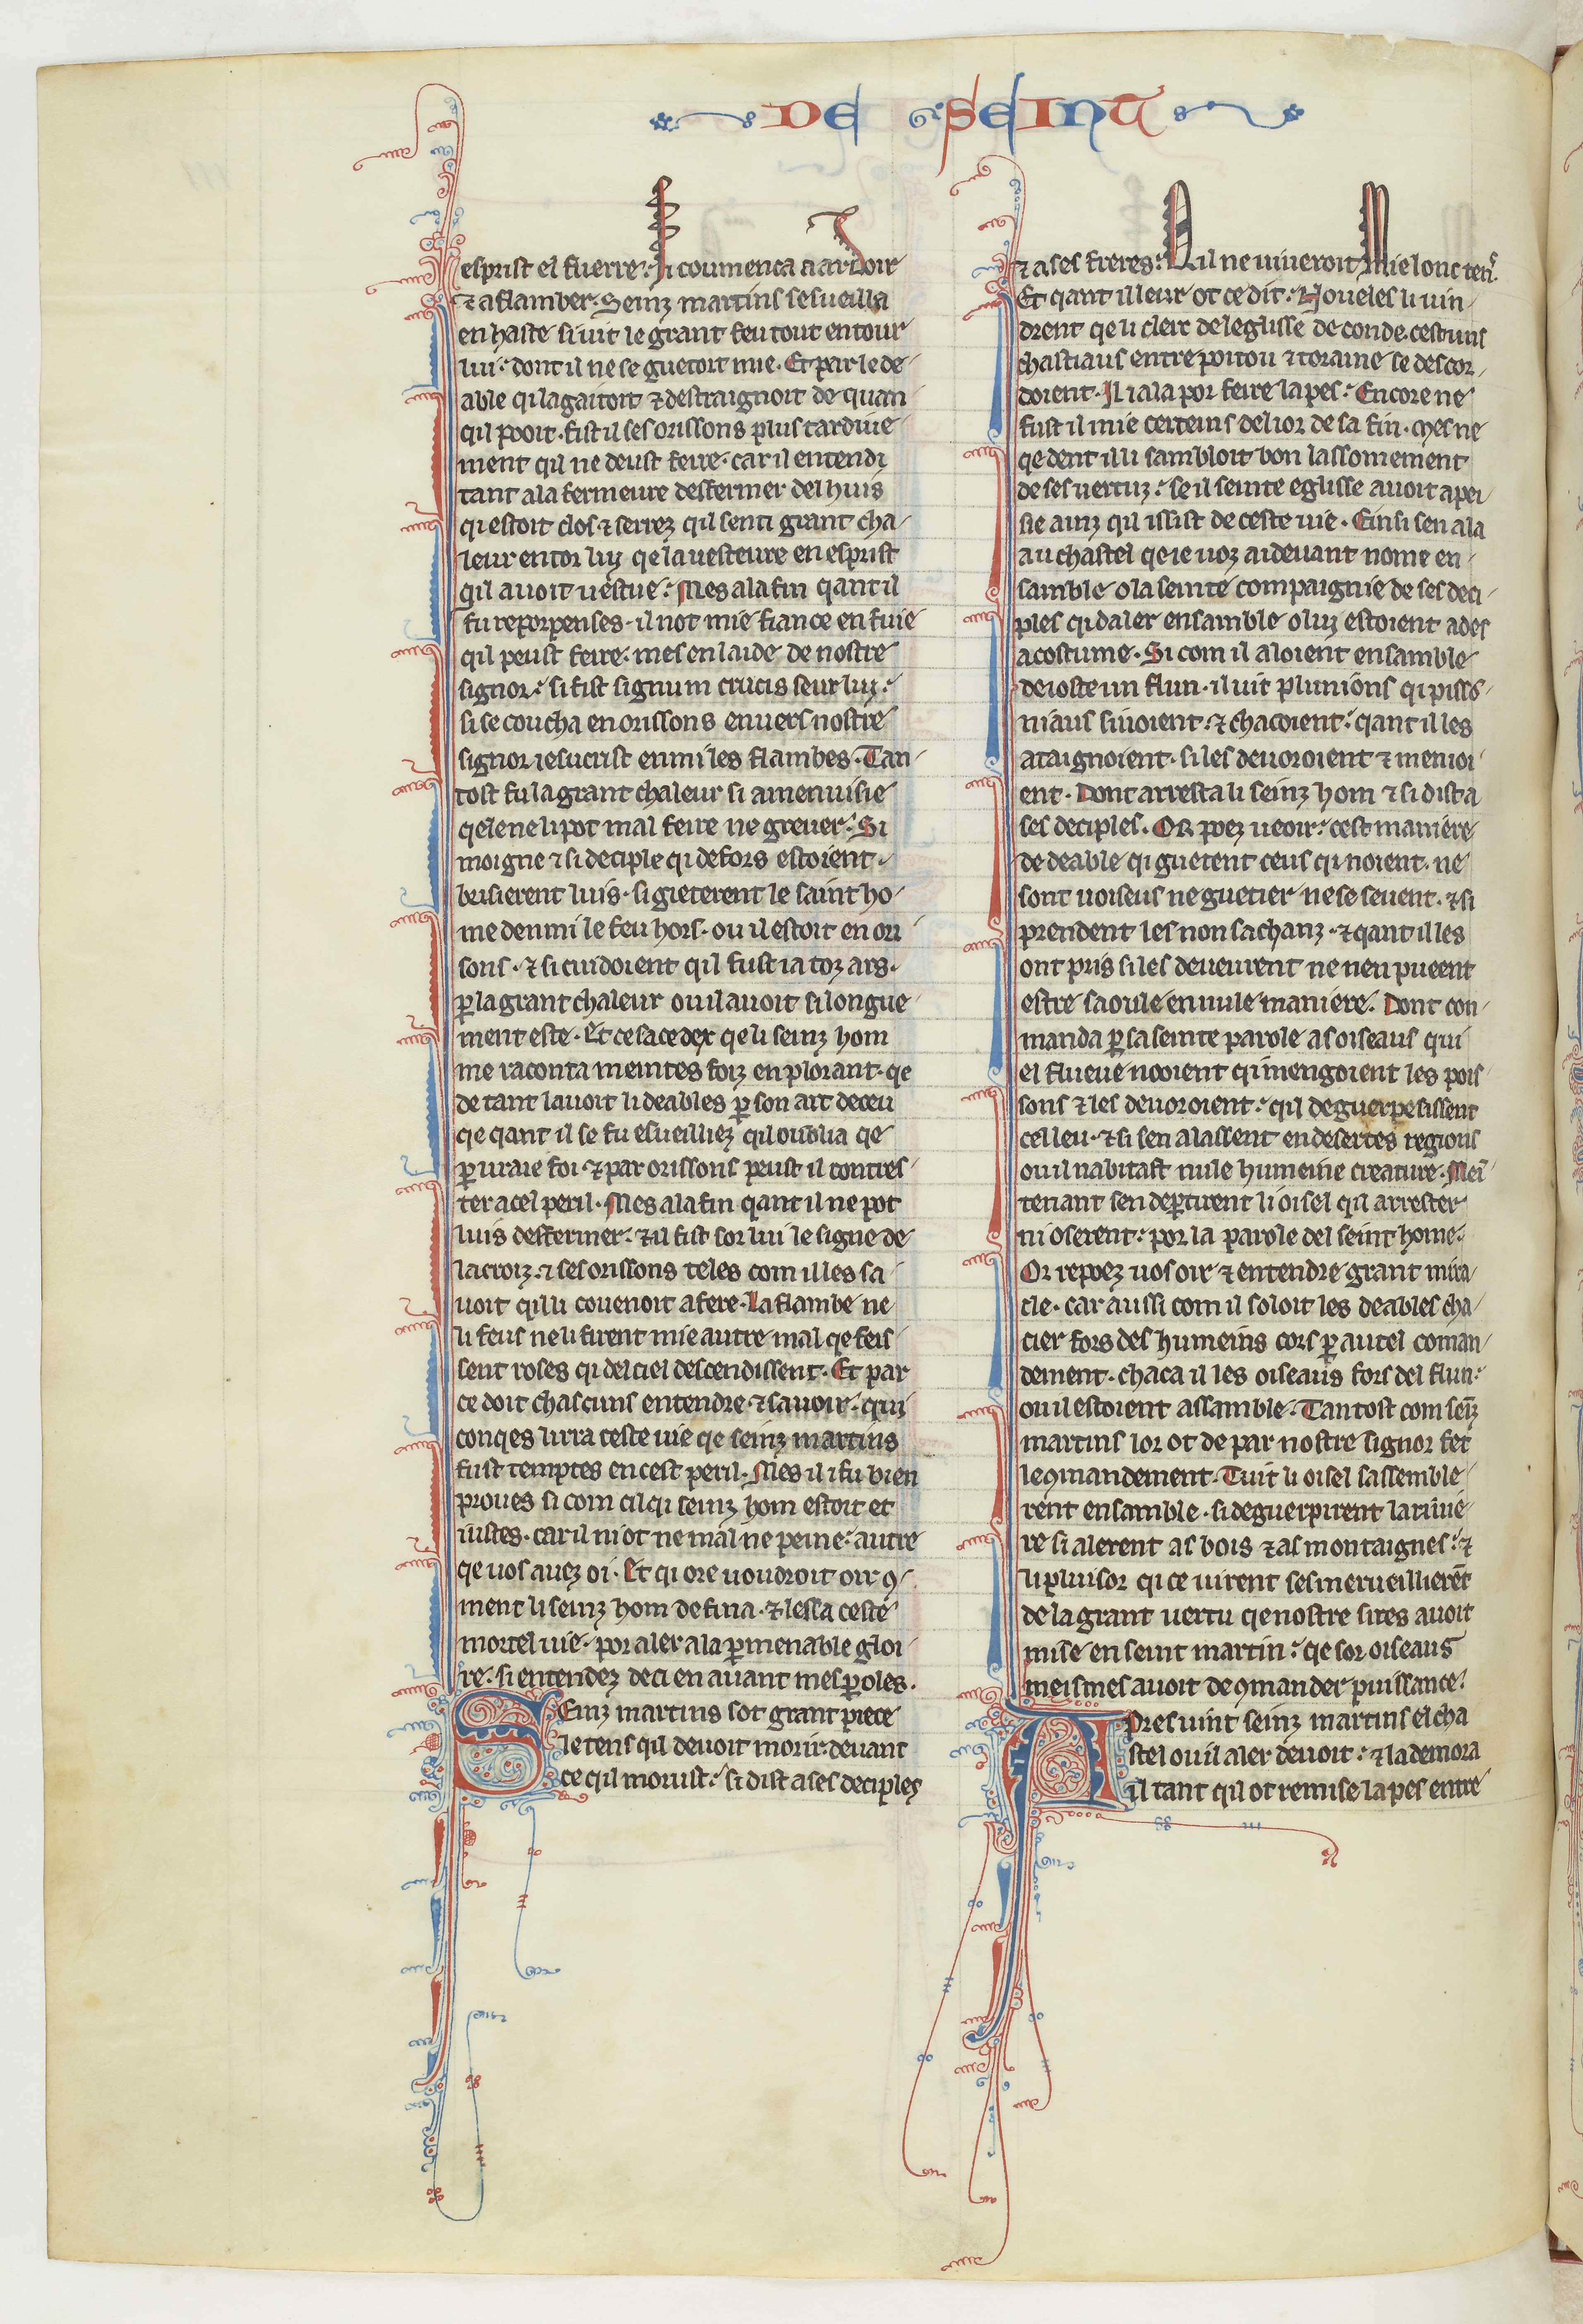 DE SEINT
esprist el fuerre. Si coumenca a ardoir
⁊ a flamber. Seinz martins sesueilla
en haste si uit le grant feu tout entour
lui. dont il ne se guetoit mie. Et par le de
able qi lagaitoit ⁊ destraignoit de quan
qil pooit. fist il ses orissons plus tardiue
ment qil ne deust feire. car il entendi
tant a la fermeure desfermer del huis
qi estoit clos ⁊ serrez qil senti grant cha
leur entor luy qe la uesteure en esprist
qil auoit uestue. Mes a la fin qant il
fu reporpenses. il not mie fiance en fuie
qil peust feire. mes en laide de nostre
signor. si fist signum crucis seur luy.
si se coucha en orissons enuers nostre
signor iesucrist enmi les flambes. Tan
tost fu la grant chaleur si amenuisie
qele ne li pot mal feire ne greuer. Si
moigne ⁊ si deciple qi defors estoient.
brisierent luis. si gieterent le saint ho
me denmi le feu hors. ou il estoit en ori
sons. ⁊ si cuidoient qil fust ia toz ars.
ꝑ la grant chaleur ou il auoit si longue
ment este. Et ce sace dex qe li seinz hom
me raconta meintes foiz en plorant. qe
de tant lauoit li deables ꝑ son art deceu
qe qant il se fu esueilliez qil oublia qe
ꝑ uraie foi. ⁊ par orissons peust il contres
ter a cel peril. Mes a la fin qant il ne pot
luis desfermer. ⁊ il fist sor lui le signe de
la croiz. ⁊ ses orissons teles com il les sa
uoit qil li couenoit a fere. La flambe ne
li feus ne li firent mie autre mal qe feis
sent roses qi del ciel descendissent. Et par
ce doit chascuns entendre ⁊ sauoir. qui
conqes lirra ceste uie qe seinz martins
fust temptes en cest peril. Mes il i fu bien
proues si com cil qi seinz hom estoit et
iustes. car il ni ot ne mal ne peine. autre
qe uos auez oi. Et qi ore uoudroit oir ꝯ
ment li seinz hom defina. ⁊ lessa ceste
mortel uie. por aler a la ꝑmenable gloi
re. si entendez deci en auant mes ꝑoles.
Seinz martins sot grant piece
le tens qil deuoit morir. deuant
ce qil morust. si dist a ses deciples
⁊ a ses freres. Qil ne uiueroit Mie lonc ten᷒.
Et qant il leur ot ce dit. Noueles li uin
drent qe li clerc de leglisse de conde. cest uns
chastiaus entre poitou ⁊ toraine se descor
doient. Il i ala por feire la pes. Encore ne
fust il mie certeins del ior de sa fin. Mes ne
qedent il li sambloit bon lassomement
de ses uertuz. se il seinte eglisse auoit apei
sie ainz qil issist de ceste uie. Einsi sen ala
au chastel qe ie uoz ai deuant nome en
samble o la seinte compaignie de ses deci
ples qi daler ensamble o luy estoient ades
acostume. Si com il aloient ensamble
deioste un flun. il uit plunions qi pisso
niaus siuoient. ⁊ chacoient. qant il les
ataignoient. si les deuoroient ⁊ menioi
ent. Dont arresta li seinz hom ⁊ si dist a
ses deciples. OR poez ueoir. cest maniere
de deable qi guetent ceus qi noient. ne
sont uoiseus ne guetier ne se seuent. ⁊ si
prendent les non sachanz. ⁊ qant il les
ont pris si les deueurent ne nen pueent
estre saoule en nule maniere. Dont con
manda ꝑ sa seinte parole as oiseaus qui
el flueue nooient qi mengoient les pois
sons ⁊ les deuoroient. qil deguerpesissent
cel leu. ⁊ si sen alassent en desertes regions
ou il nabitast nule humeine creature. Mei̅
tenant sen deꝑtirent li oisel qil arrester
ni oserent. por la parole del seint home.
Or repoez uos oir ⁊ entendre grant mira
cle. car aussi com il soloit les deables cha
cier fors des humeins cors ꝑ autel coman
dement. chaca il les oiseaus fors del flun.
ou il estoient assamble. Tantost com sei̅z
martins lor ot de par nostre signor fet
le ꝯmandement. Tuit li oisel sassemble
rent ensamble. si deguerpirent la riuie
re si alerent as bois ⁊ as montaignes. ⁊
li pluisor qi ce uirent sesmerueilliere̅t
de la grant uertu qe nostre sires auoit
mise en seint martin. qe sor oiseaus
meismes auoit de ꝯmander puissance.
Apres uint seinz martins el cha
stel ou il aler deuoit. ⁊ la demora
il tant qil ot remise la pes entre